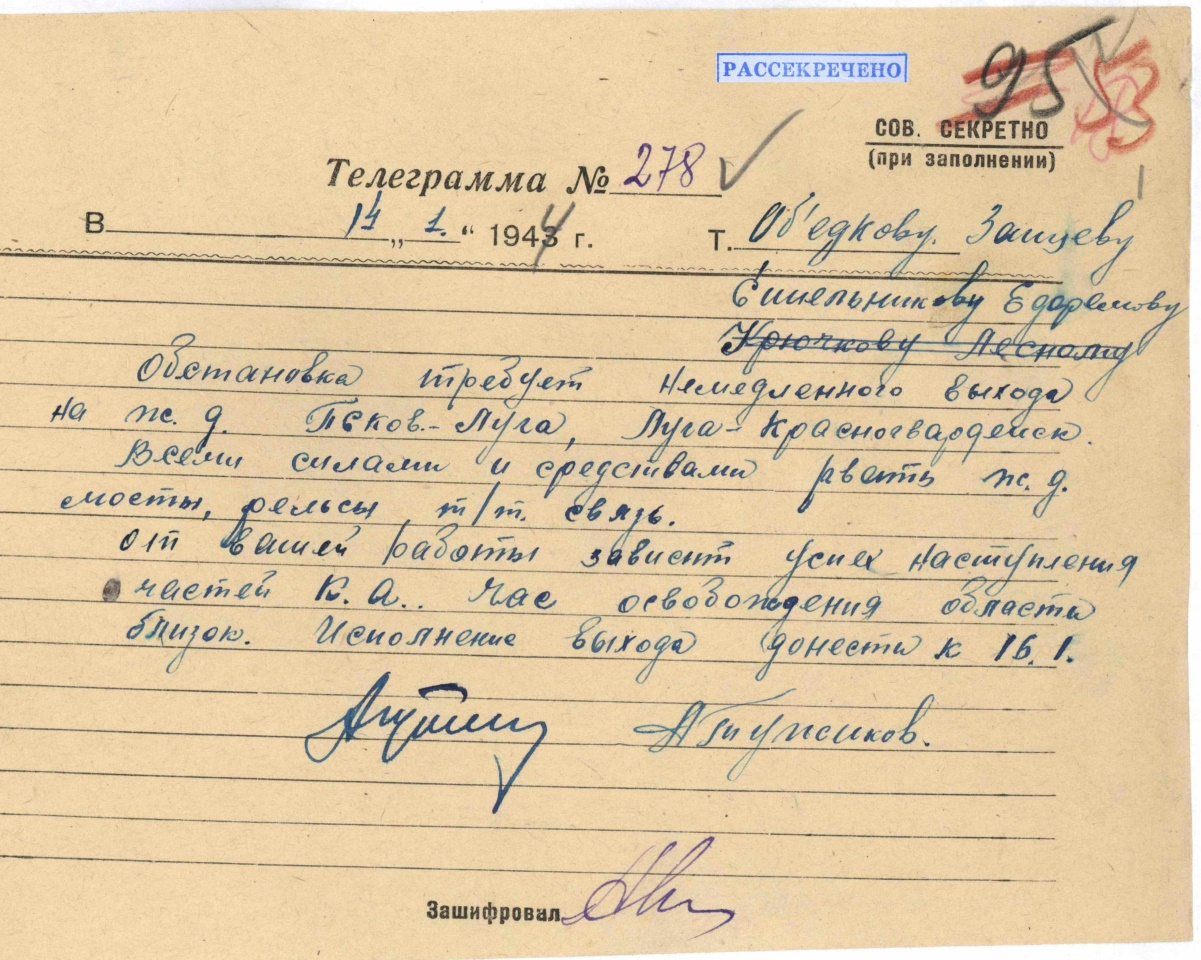 РАССЕКРЕЧЕНО
95
СОВ. СЕКРЕТНО
(при заполнении)
Телеграмма № 278
В 14 „ 1. “ 1944 г. т. Об'едкову. Зайцеву
Синельникову Ефремову
Крючкову
Обстановка требует немедленного выхода
на ж. д. Псков-Луга, Луга-Красногвардейск.
Всеми силами и средствами рвать ж. д.
мосты, рельсы т/т. связь.
от вашей работы зависит успех наступления
частей К. А.. Час освобождения области
близок. Исполнение выхода донести к 16.1.
Зашифровал